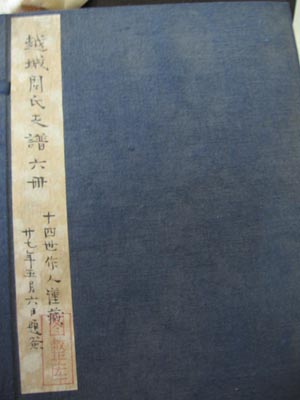 越城周氏支譜六冊
十四世作人謹藏
廿七年五月六日題簽